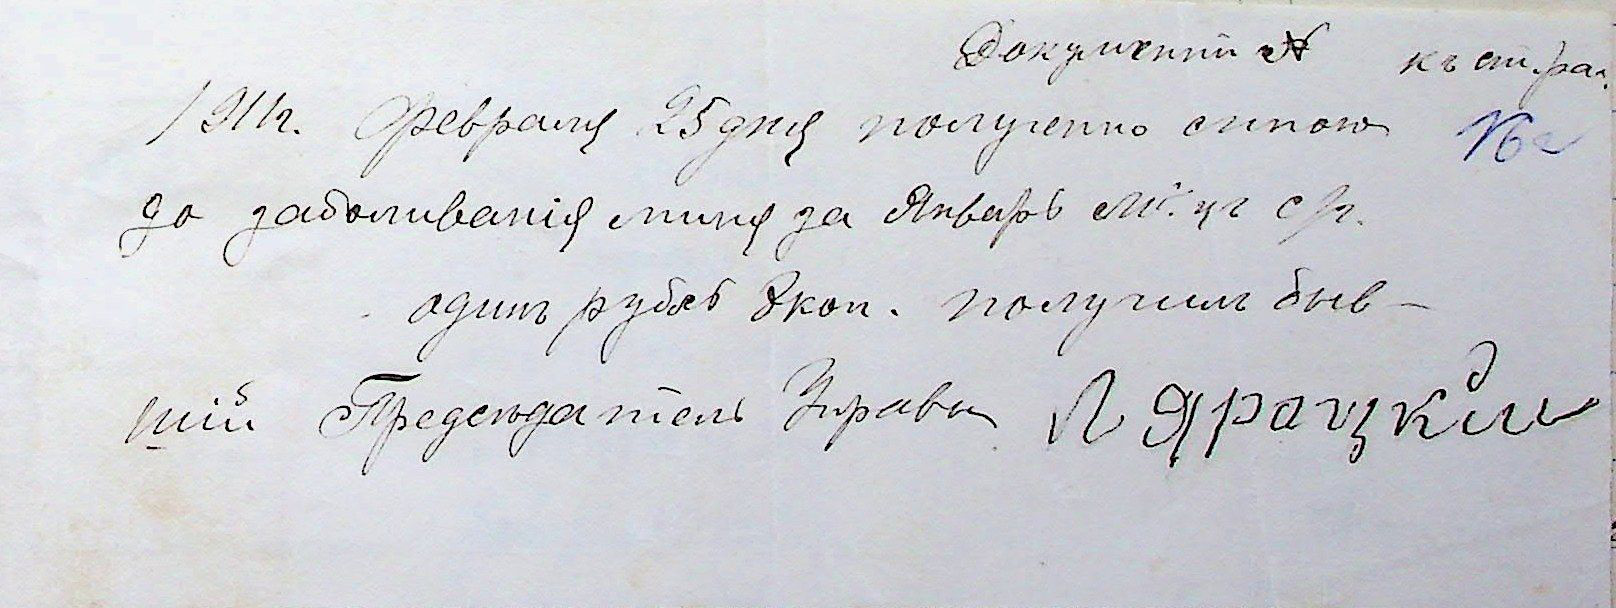 Документъ № къ ст. рас.
191 г. Февраля 25 дня полученно мною
№
до заболиванія миня за Январь м-цъ с/г.
одинъ рубль 8 коп. получилъ быв-
шій Председатель Управы Л Яроцкій